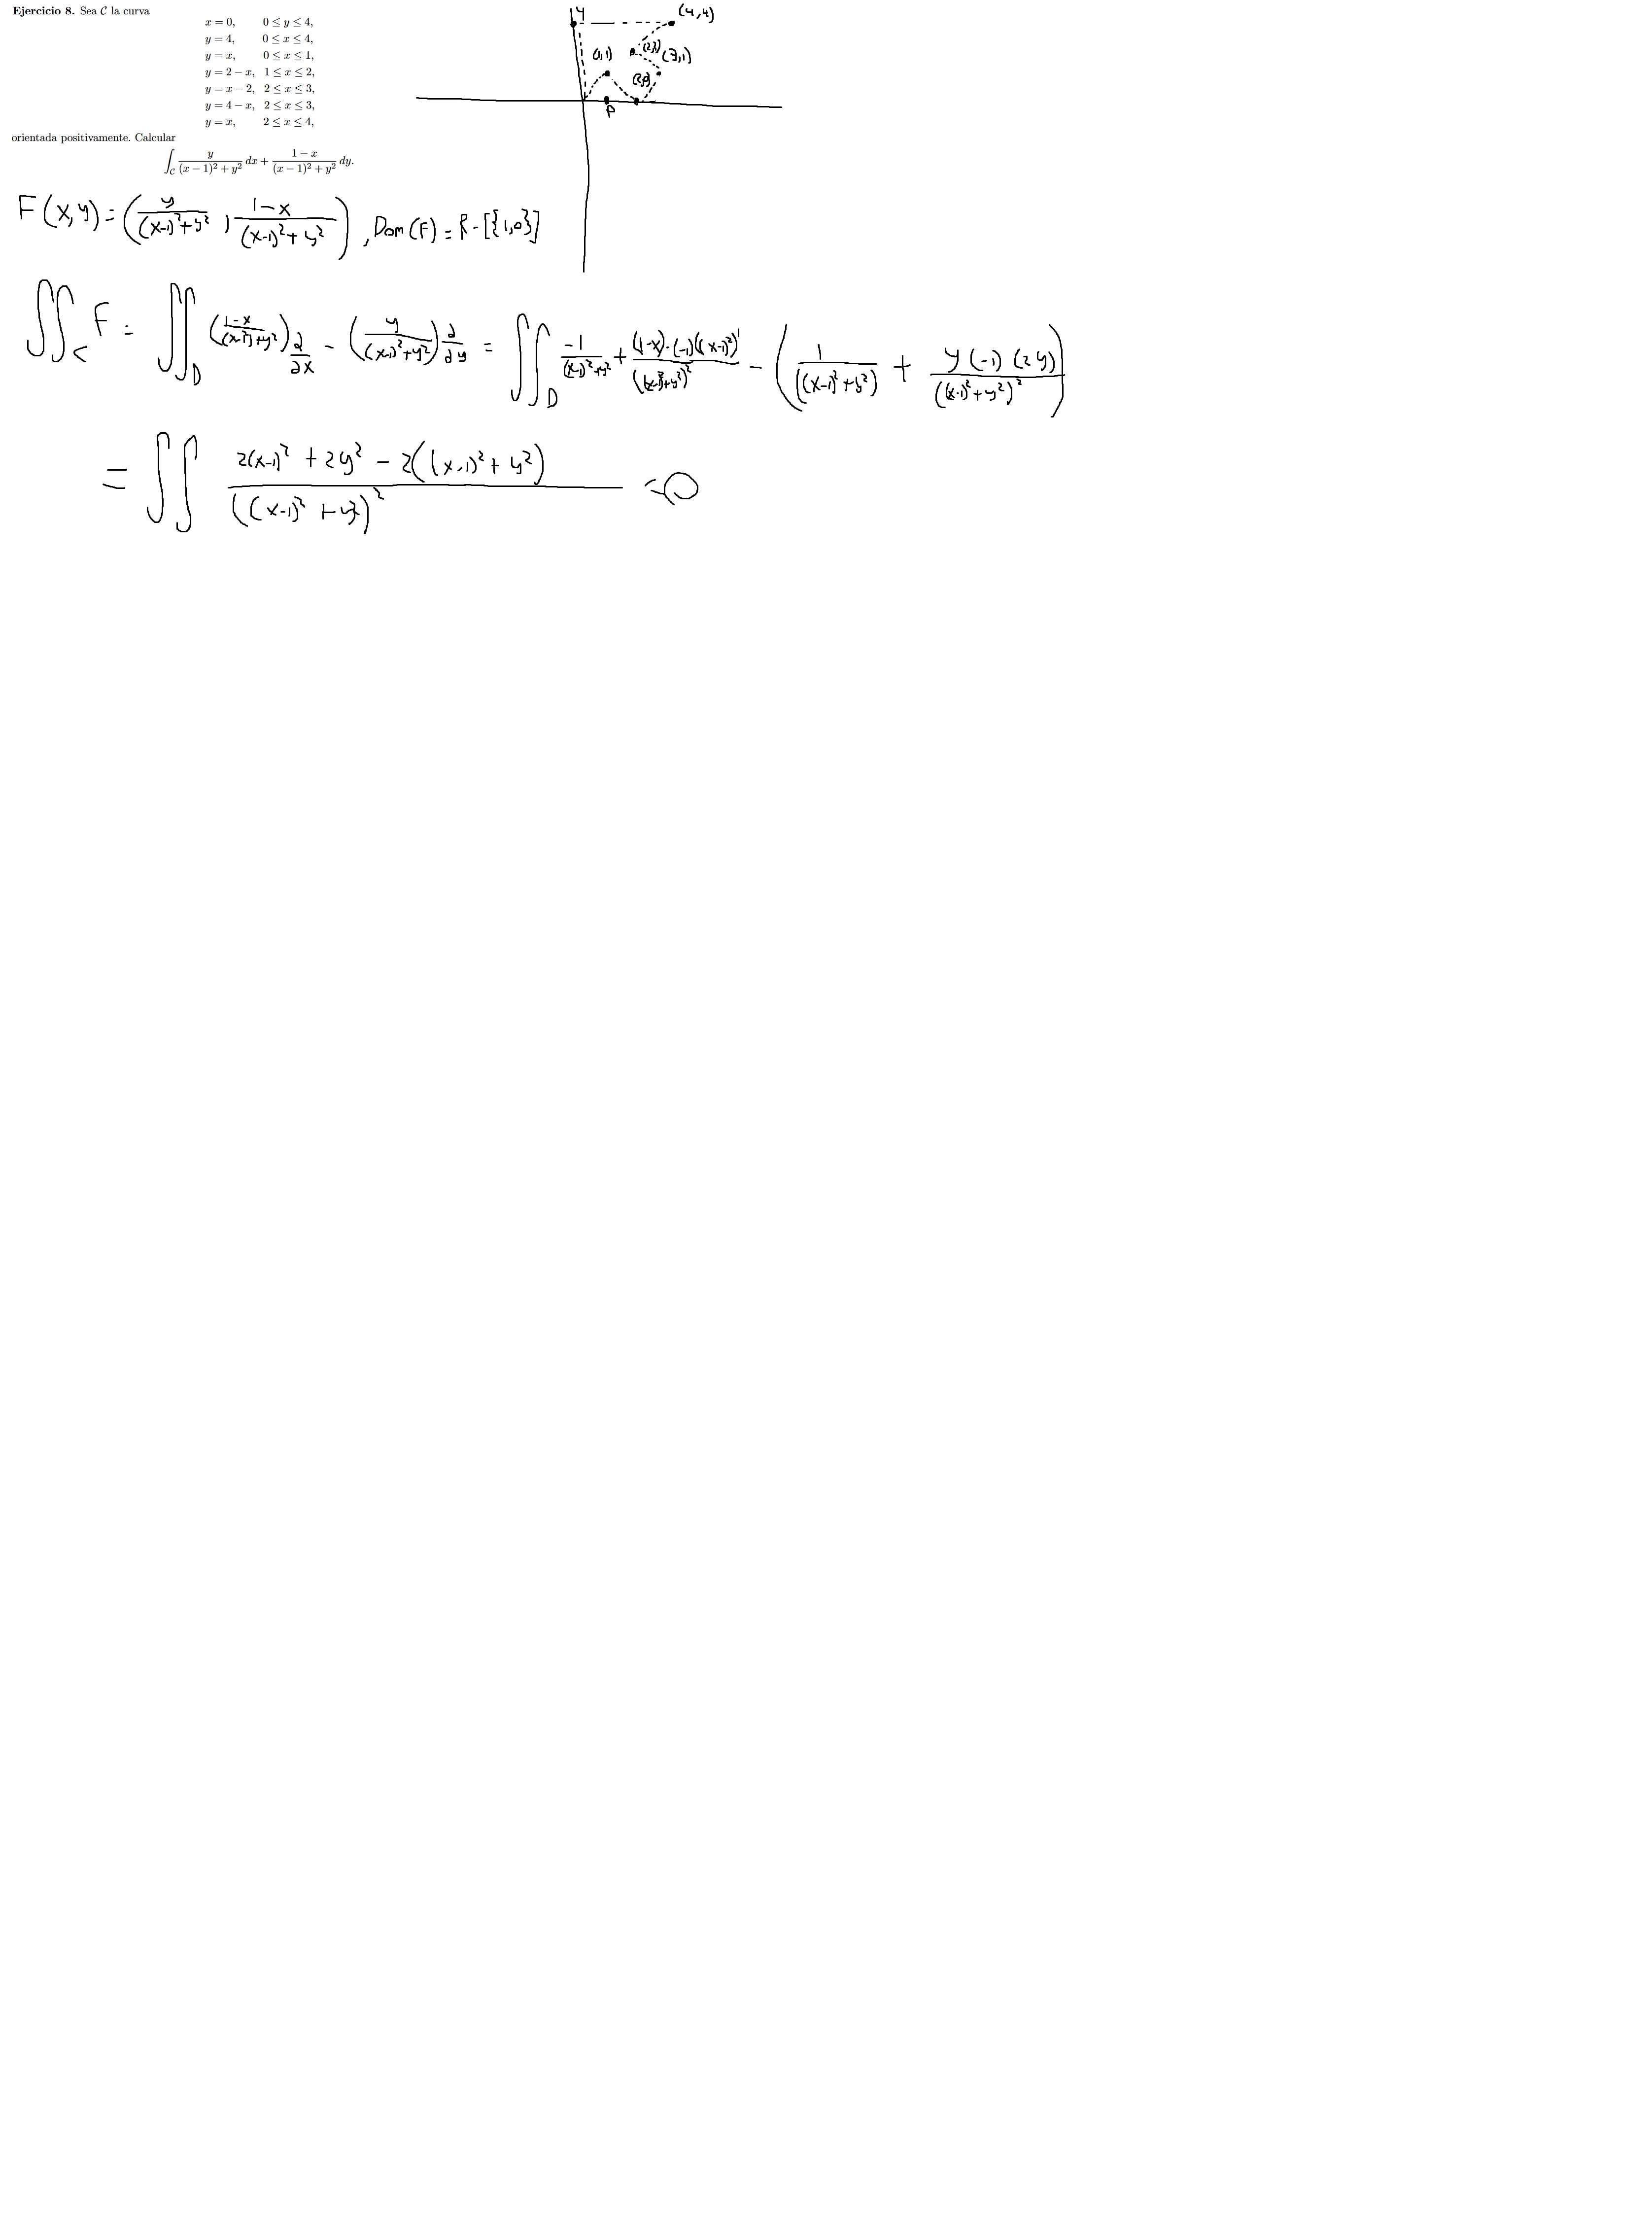 Ejercicio 8. Sea C la curva
x = 0, 0 ≤ y ≤ 4,
y = 4, 0 ≤ x ≤ 4,
y = x, 0 ≤ x ≤ 1,
y = 2 − x, 1 ≤ x ≤ 2,
y = x − 2, 2 ≤ x ≤ 3,
y = 4 − x, 2 ≤ x ≤ 3,
y = x, 2 ≤ x ≤ 4,
orientada positivamente. Calcular
∫_C y/((x − 1)² + y²) dx + (1 − x)/((x − 1)² + y²) dy.
4 (4,4)
(1,1) (2,2) (3,1)
(2,0)
P
F(x,y) = (y/((x-1)²+y²), (1-x)/((x-1)²+y²)), Dom(F) = R - [{1,0}]
∬_C F = ∬_D ((1-x)/((x-1)²+y²)) ∂/∂x - (y/((x-1)²+y²)) ∂/∂y = ∬_D -1/((x-1)²+y²) + (1-x)·(-1)((x-1)²)'/((x-1)²+y²)² - (1/((x-1)²+y²) + y(-1)(2y)/((x-1)²+y²)²)
= ∬ (2(x-1)² + 2y² - 2((x-1)² + y²))/((x-1)² + y²)² = 0